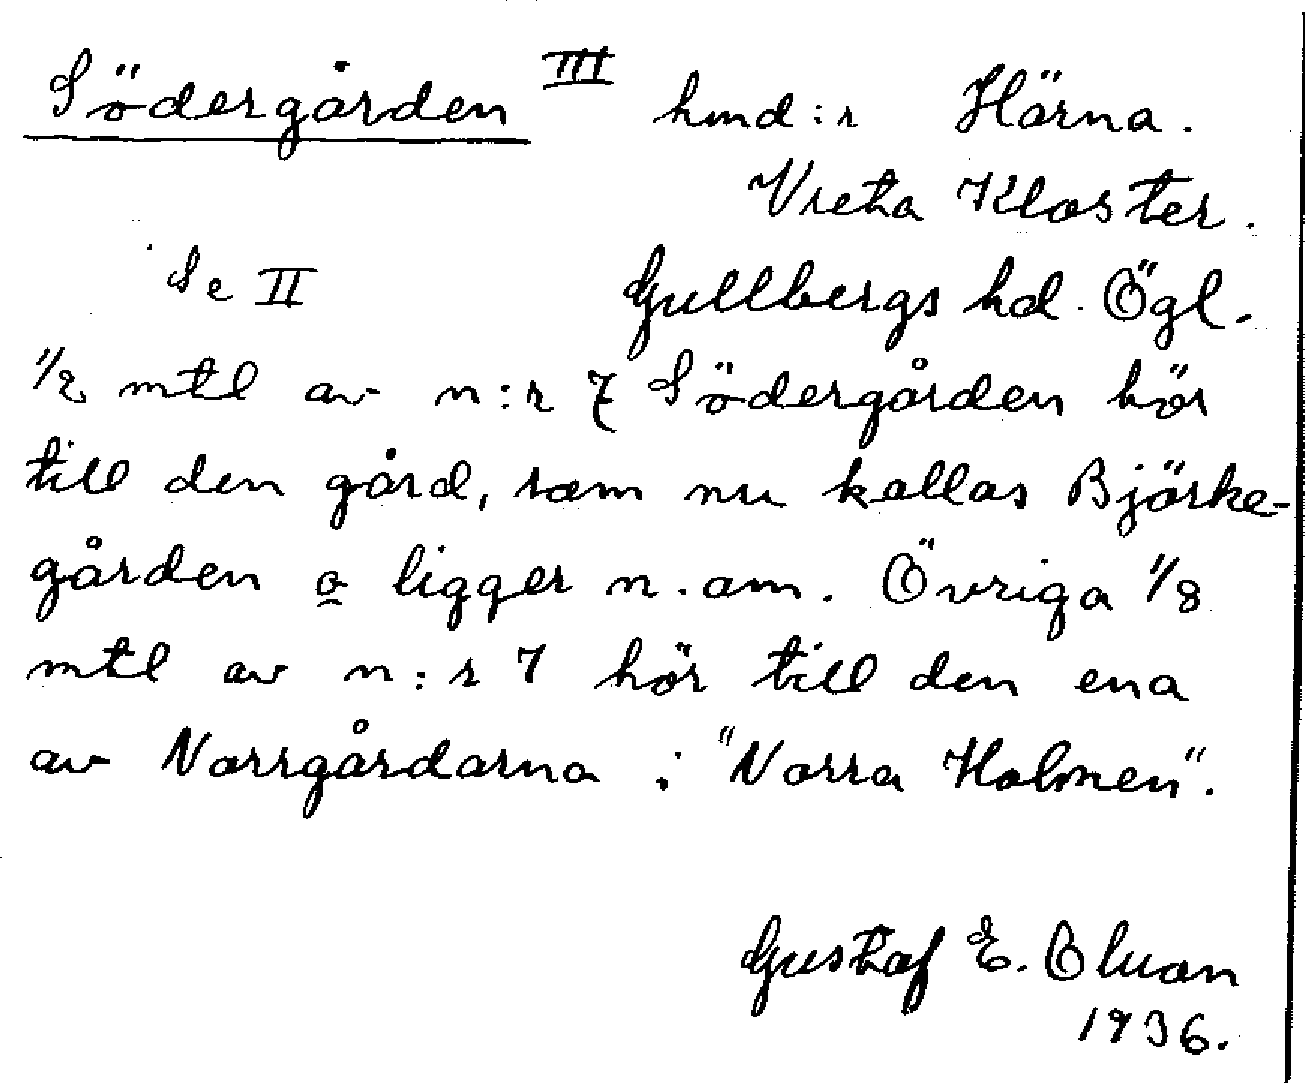 Södergården III hmd:r Härna.
Vreta Kloster.
Se II Gullbergs hd. Ögl.
1/2 mtl av n:r 7 Södergården hör
till den gård, som nu kallas Björke-
gården o ligger n. om. Övriga 1/8
mtl av n:r 7 hör till den ena
av Norrgårdarna i "Norra Holmen".
Gustaf E.
1936.